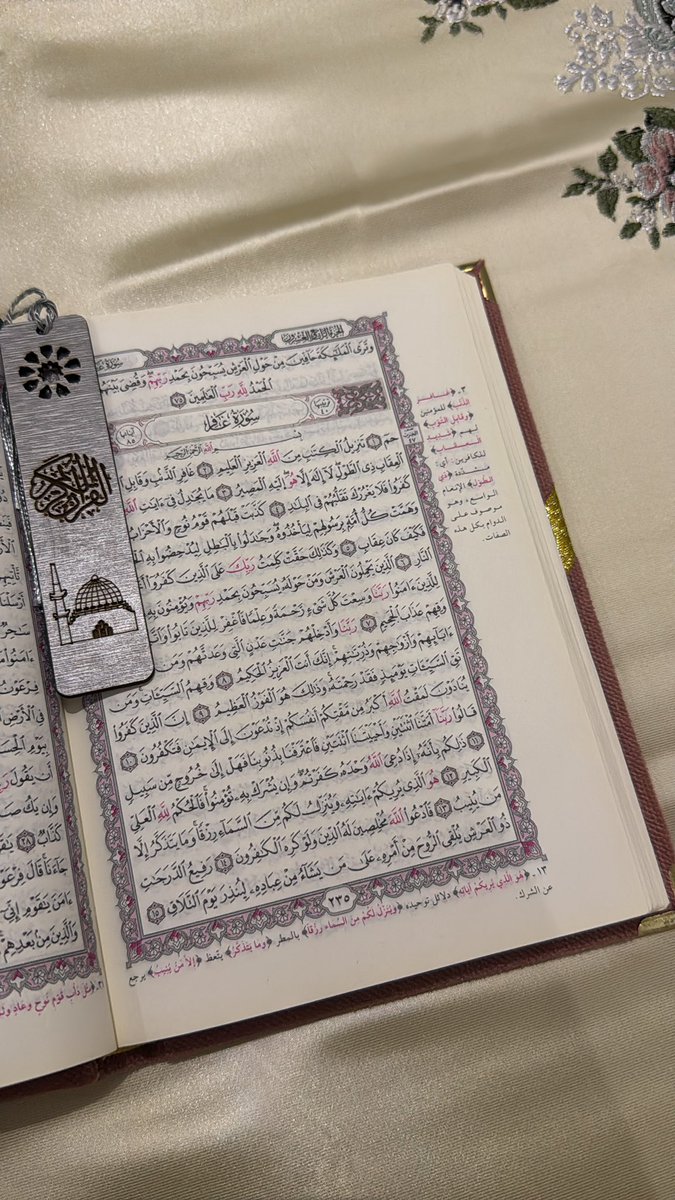 الجزء الرابع والعشرون
وَتَرَى الْمَلَٰٓئِكَةَ حَآفِّينَ مِنْ حَوْلِ الْعَرْشِ يُسَبِّحُونَ بِحَمْدِ رَبِّهِمْ وَقُضِىَ بَيْنَهُم
الْحَمْدُ لِلَّهِ رَبِّ الْعَٰلَمِينَ ٧٥
ترتيبها ٤٠ سُورَةُ غَافِرٍ آياتها ٨٥
بِسْمِ اللَّهِ الرَّحْمَٰنِ الرَّحِيمِ
حمٓ ١ تَنزِيلُ الْكِتَٰبِ مِنَ اللَّهِ الْعَزِيزِ الْعَلِيمِ ٢ غَافِرِ الذَّنۢبِ وَقَابِلِ
الْعِقَابِ ذِى الطَّوْلِ لَآ إِلَٰهَ إِلَّا هُوَ إِلَيْهِ الْمَصِيرُ ٣ مَا يُجَٰدِلُ فِىٓ ءَايَٰتِ اللَّهِ
كَفَرُوا فَلَا يَغْرُرْكَ تَقَلُّبُهُمْ فِى الْبِلَٰدِ ٤ كَذَّبَتْ قَبْلَهُمْ قَوْمُ نُوحٍ وَالْأَحْزَابُ
وَهَمَّتْ كُلُّ أُمَّةٍۭ بِرَسُولِهِمْ لِيَأْخُذُوهُ وَجَٰدَلُوا بِالْبَٰطِلِ لِيُدْحِضُوا بِهِ
فَكَيْفَ كَانَ عِقَابِ ٥ وَكَذَٰلِكَ حَقَّتْ كَلِمَتُ رَبِّكَ عَلَى الَّذِينَ كَفَرُوٓا
النَّارِ ٦ الَّذِينَ يَحْمِلُونَ الْعَرْشَ وَمَنْ حَوْلَهُۥ يُسَبِّحُونَ بِحَمْدِ رَبِّهِمْ وَيُؤْمِنُونَ بِهِ
لِلَّذِينَ ءَامَنُوا رَبَّنَا وَسِعْتَ كُلَّ شَىْءٍ رَّحْمَةً وَعِلْمًا فَاغْفِرْ لِلَّذِينَ تَابُوا وَاتَّ
وَقِهِمْ عَذَابَ الْجَحِيمِ ٧ رَبَّنَا وَأَدْخِلْهُمْ جَنَّٰتِ عَدْنٍ الَّتِى وَعَدتَّهُمْ وَمَن
ءَابَآئِهِمْ وَأَزْوَٰجِهِمْ وَذُرِّيَّٰتِهِمْ إِنَّكَ أَنتَ الْعَزِيزُ الْحَكِيمُ ٨ وَقِهِمُ السَّيِّـَٔاتِ وَمَن
تَقِ السَّيِّـَٔاتِ يَوْمَئِذٍ فَقَدْ رَحِمْتَهُۥ وَذَٰلِكَ هُوَ الْفَوْزُ الْعَظِيمُ ٩ إِنَّ الَّذِينَ كَفَرُوا
يُنَادَوْنَ لَمَقْتُ اللَّهِ أَكْبَرُ مِن مَّقْتِكُمْ أَنفُسَكُمْ إِذْ تُدْعَوْنَ إِلَى الْإِيمَٰنِ فَتَكْفُرُونَ ١٠
قَالُوا رَبَّنَآ أَمَتَّنَا اثْنَتَيْنِ وَأَحْيَيْتَنَا اثْنَتَيْنِ فَاعْتَرَفْنَا بِذُنُوبِنَا فَهَلْ إِلَىٰ خُرُوجٍ مِّن سَبِيلٍ
١١ ذَٰلِكُم بِأَنَّهُۥٓ إِذَا دُعِىَ اللَّهُ وَحْدَهُۥ كَفَرْتُمْ وَإِن يُشْرَكْ بِهِۦ تُؤْمِنُوا فَالْحُكْمُ لِلَّهِ الْعَلِىِّ
الْكَبِيرِ ١٢ هُوَ الَّذِى يُرِيكُمْ ءَايَٰتِهِۦ وَيُنَزِّلُ لَكُم مِّنَ السَّمَآءِ رِزْقًا وَمَا يَتَذَكَّرُ إِلَّا
مَن يُنِيبُ ١٣ فَادْعُوا اللَّهَ مُخْلِصِينَ لَهُ الدِّينَ وَلَوْ كَرِهَ الْكَٰفِرُونَ ١٤ رَفِيعُ الدَّرَجَٰتِ
ذُو الْعَرْشِ يُلْقِى الرُّوحَ مِنْ أَمْرِهِۦ عَلَىٰ مَن يَشَآءُ مِنْ عِبَادِهِۦ لِيُنذِرَ يَوْمَ التَّلَاقِ ١٥
٢٣٥
٣ـ ﴿غافر
الذنب﴾ للمؤمنين
﴿وقابل التوب﴾
لهم ﴿شديد
العقاب﴾
للكافرين، أي:
مشدده ﴿ذي
الطول﴾ الإنعام
الواسع، وهو
موصوف على
الدوام بكل هذه
الصفات.
١٣ـ ﴿هو الذي يريكم آياته﴾ دلائل توحيده ﴿وينزل لكم من السماء رزقا﴾ بالمطر ﴿وما يتذكر﴾ يتعظ ﴿إلا من ينيب﴾ يرجع
عن الشرك.
القرآن الكريم